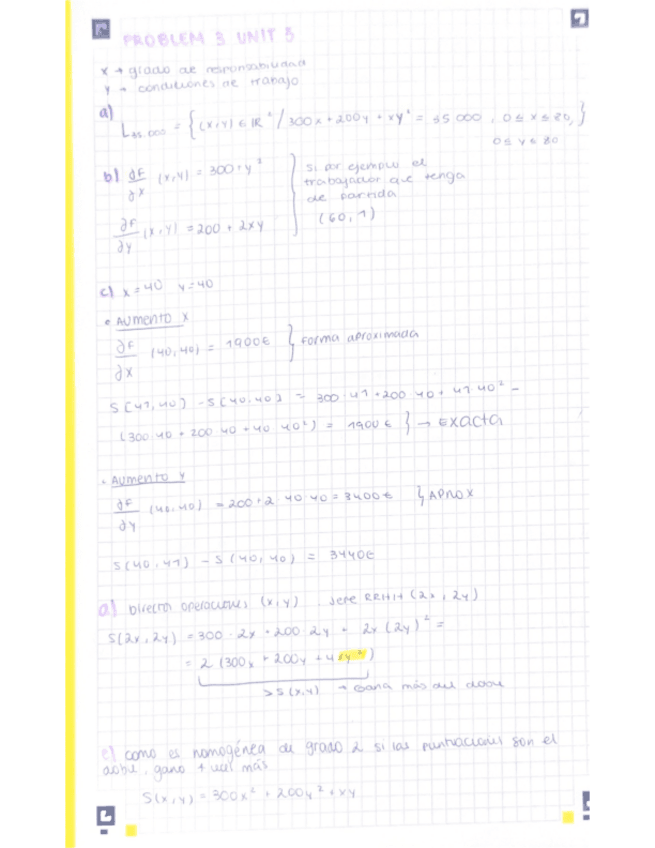 PROBLEM 3 UNIT 5
x → grado de responsabilidad
y → condiciones de trabajo
a)
L35.000 = { (x,y) ∈ IR² / 300x + 200y + xy² = 35 000 , 0 ≤ x ≤ 80,
0 ≤ y ≤ 80 }
b) ∂F/∂x (x,y) = 300 + y²
∂F/∂y (x,y) = 200 + 2xy
si por ejemplo el
trabajador que tenga
de partida
(60, 1)
c) x = 40 y = 40
• Aumento x
∂F/∂x (40,40) = 1900€ } forma aproximada
S(41,40) - S(40,40) = 300·41 + 200·40 + 41·40² -
(300·40 + 200·40 + 40·40²) = 1900€ } → EXACTA
• Aumento y
∂F/∂y (40,40) = 200 + 2·40·40 = 3400€ } Aprox
S(40,41) - S(40,40) = 3440€
d) Director operaciones (x,y) . Jefe RRHH (2x, 2y)
S(2x, 2y) = 300·2x + 200·2y + 2x(2y)² =
= 2 (300x + 200y + 4xy²)
> S(x,y) → Gana más del doble
e) como es homogénea de grado 2 si las puntuaciones son el
doble, gano 4 veces más
S(x,y) = 300x² + 200y² + xy